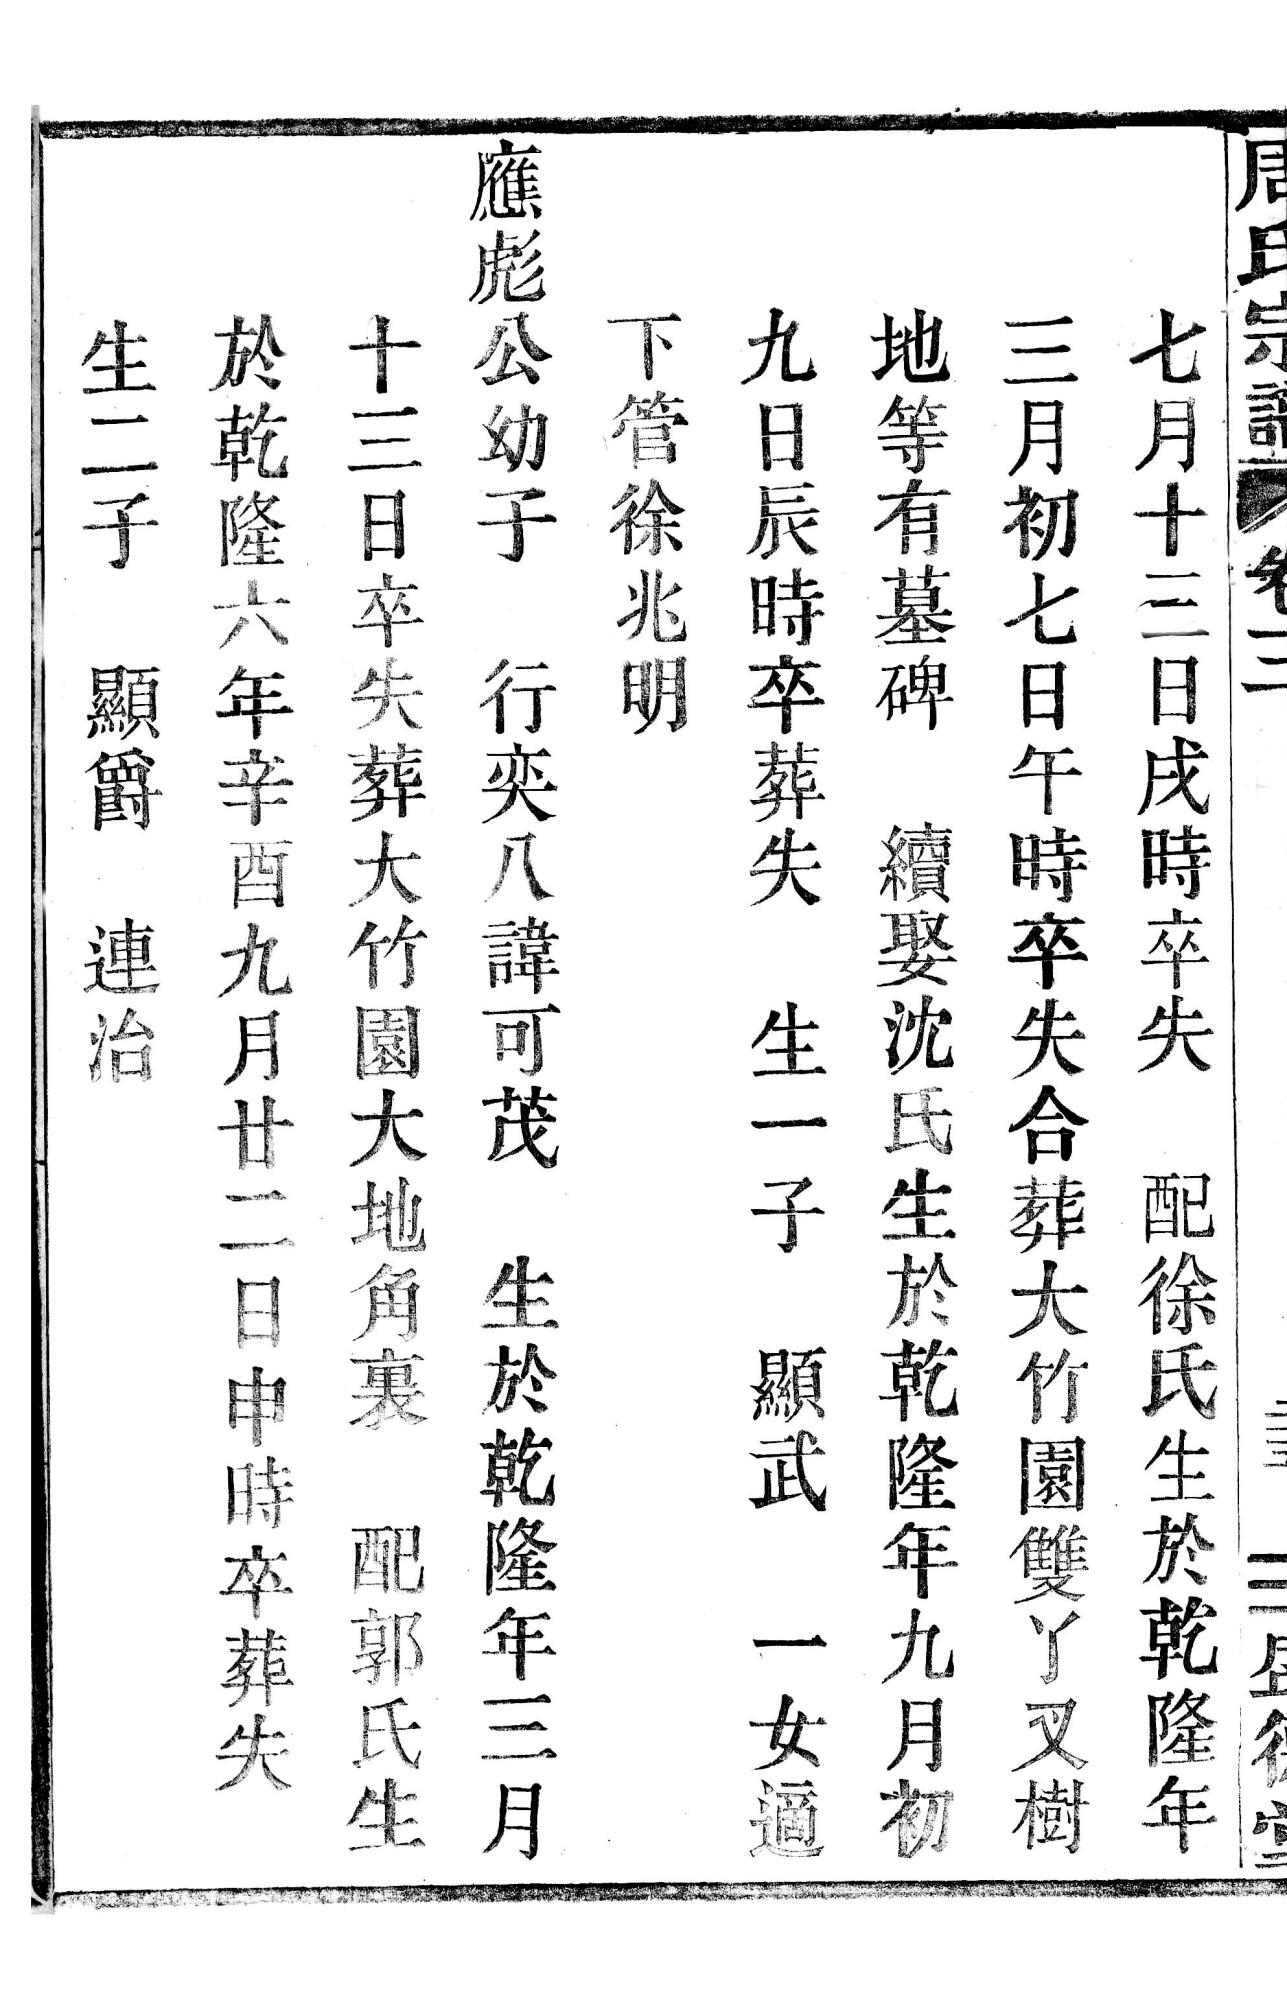 周氏宗譜 卷三 三盛德堂
七月十三日戌時卒失 配徐氏生於乾隆年
三月初七日午時卒失合葬大竹園雙丫叉樹
地等有墓碑 續娶沈氏生於乾隆年九月初
九日辰時卒葬失 生一子 顯武 一女適
下管徐兆明
應彪公幼子 行奕八諱可茂 生於乾隆年三月
十三日卒失葬大竹園大地角裏 配郭氏生
於乾隆六年辛酉九月廿二日申時卒葬失
生二子 顯爵 連治